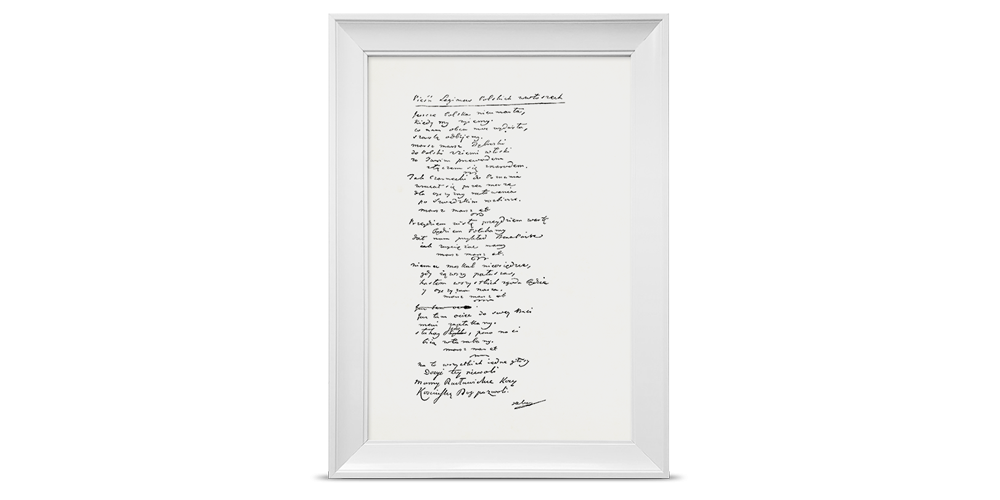 Pieśń Legionów Polskich we Włoszech
Jeszcze Polska nie umarła,
kiedy my żyjemy.
co nam obca moc wydarła,
szablą odbijemy.
marsz marsz Dąbrowski
do Polski z ziemi włoski
za Twoim przewodem
złączem się z narodem.
Jak Czarnecki do Poznania
wracał się przez morze
dla ojczyzny ratowania
po szwedzkim rozbiorze.
marsz marsz et
Przejdziem Wisłę przejdziem Wartę
będziem Polakami
dał nam przykład Bonaparte
jak zwyciężać mamy
marsz marsz et
niemiec moskal nie osiędzie,
gdy jąwszy pałasza,
hasłem wszystkich zgoda będzie
y ojczyzna nasza.
marsz marsz et
już tam ociec do swey Basi
mówi zapłakany.
słuchay, pono nasi
biią w tarabany.
marsz marsz et
na to wszystkich iedne głosy
Dosyć tey niewoli
Mamy Racławickie Kosy
Kościuszkę Bóg pozwoli.